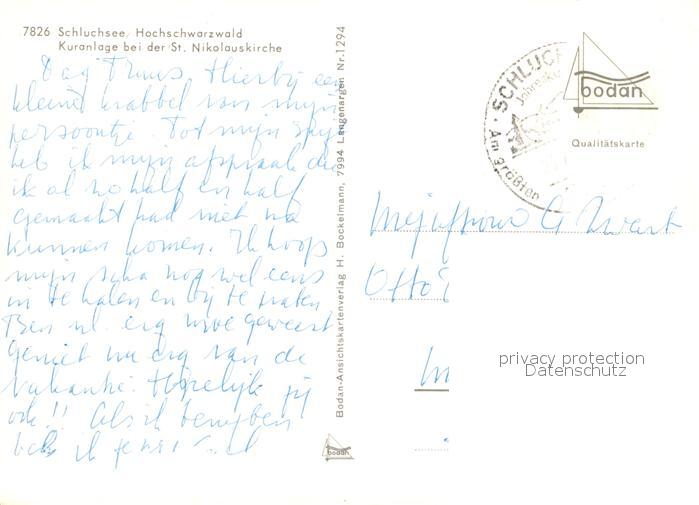 7826 Schluchsee/Hochschwarzwald
Kuranlage bei der St. Nikolauskirche
Dag Truus. Hierbij een
kleine krabbel van mijn
persoontje. Tot mijn spijt
heb ik mijn afspraak die
ik al zo half en half
gemaakt had niet na
kunnen komen. Ik hoop
mijn scha nog wel eens
in te halen en bij te praten
Ben nl. erg moe geweest
Geniet nu erg van de
vakantie. Hopelijk jij
ook!! Als ik
ik
Bodan-Ansichtskartenverlag H. Bockelmann, 7994 Langenargen Nr.1294
bodan
SCHLUCH
Am größten
bodan
Qualitätskarte
Mejuffrouw G Zwart
Otto
privacy protection
Datenschutz